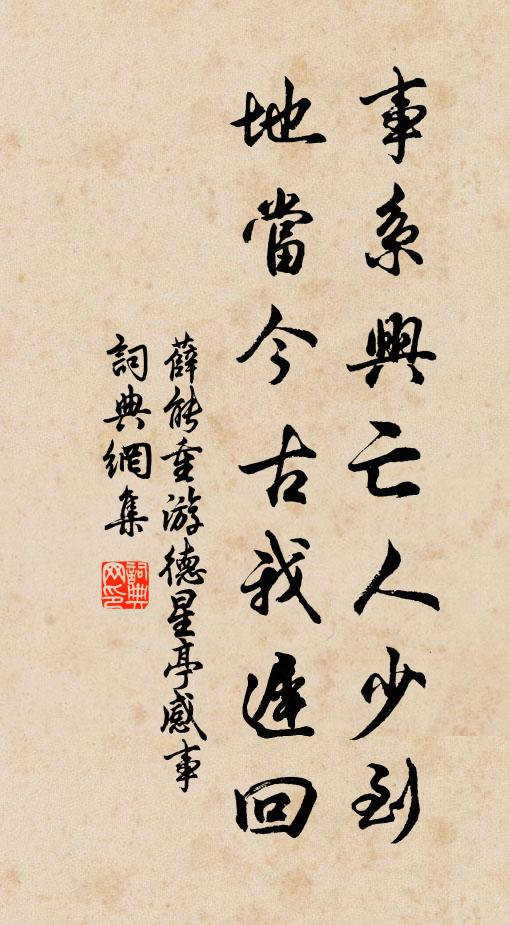 事系興亡人少到
地當今古我遲回
薛能重游德星亭感事
詞典網集
詞典
网印